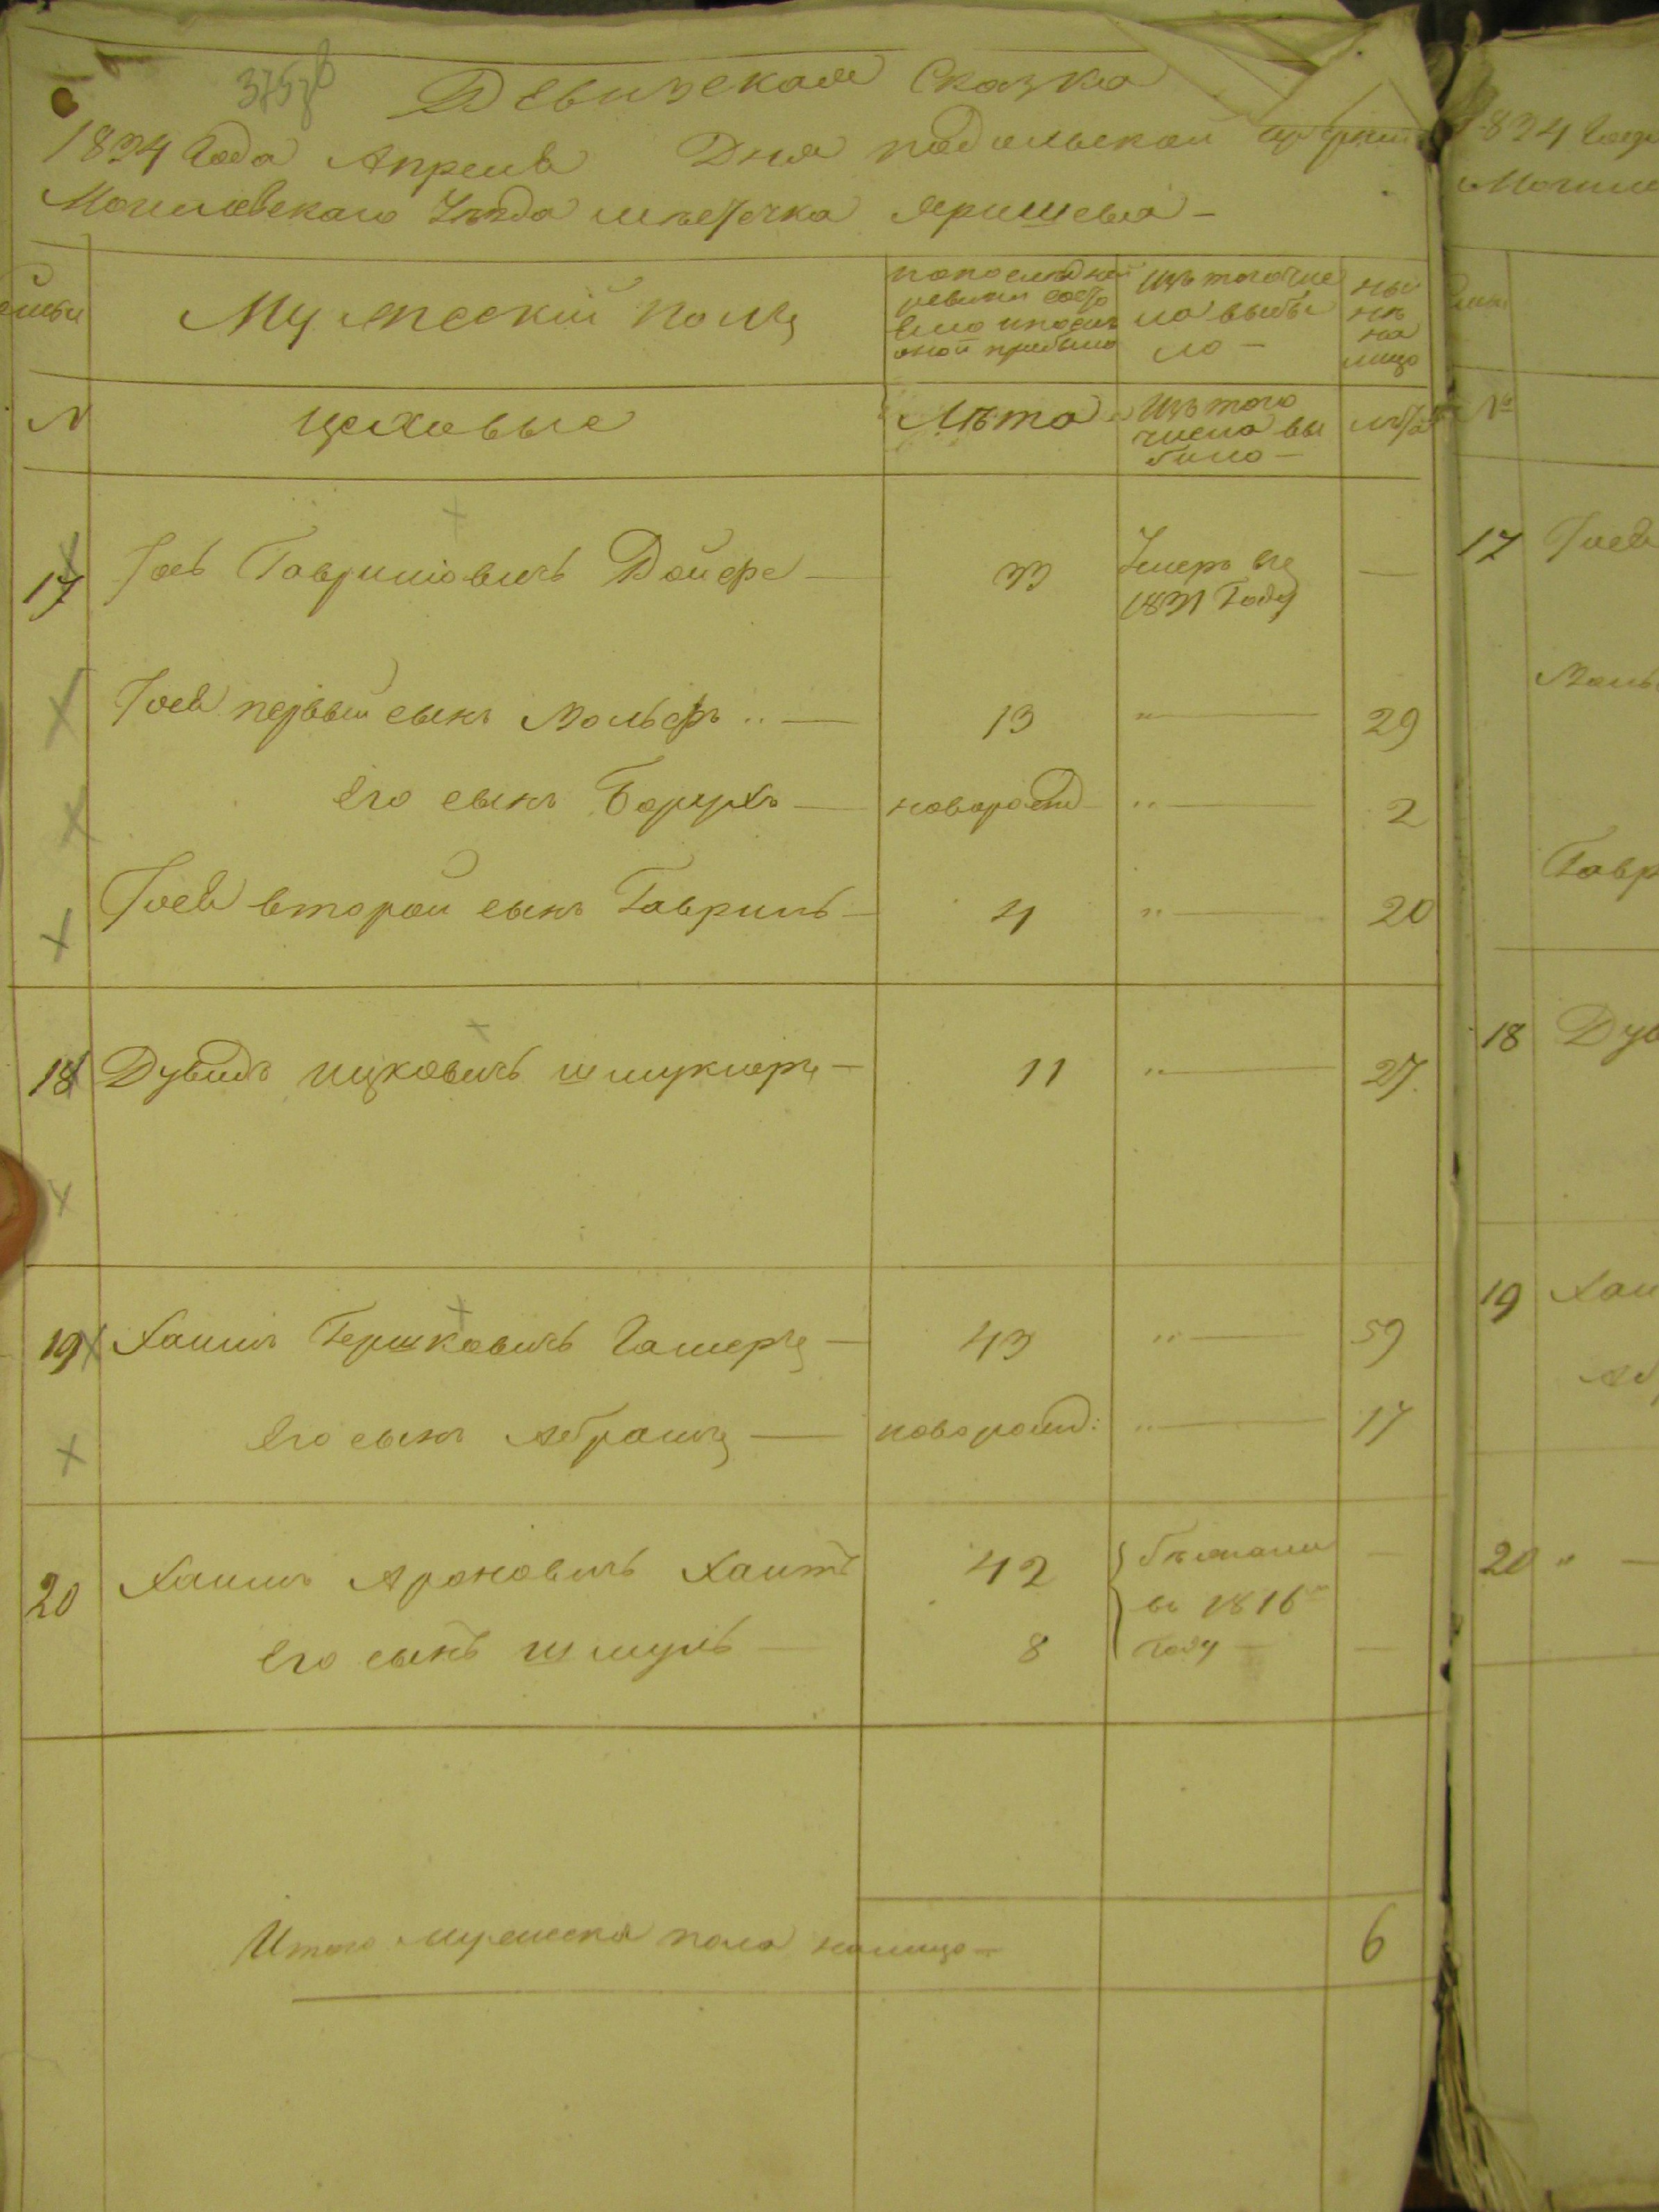 Ревизская Сказка
1834 Года Апреля Дня подольской губернии
Могилевскаго Уезда местечка Яришева –
Мужеский полъ
попоследней
ревизии состо
яло ипосле
оной прибыло
Изъ того чис
ла выбы
ло –
ны
не
на
лицо
N
цеховые
Лѣта
Изъ того
числа вы
было –
лѣта
17 Іось Гавриловичъ Дойфе – 33 Умеръ въ –
1831 Году
Іося первый сынъ Вольфъ – 13 " – 29
его сынъ Борухъ – новорожд " – 2
Іося второй сынъ Гавриль – 4 " – 20
18 Дувидъ ицковичъ шмуклеръ – 11 " – 27
19 Хаимъ Гершковичъ Гамеръ – 43 " – 59
его сынъ Абрамъ – новорожд: " – 17
20 Хаимъ Ароновичъ Хаитъ 42 бежали –
въ 1816м
его сынъ шмуль – 8 году – –
Итого мужеска пола налицо – 6
1834 Года
Могиле
№
17 Іося
Воль
Гавр
18 Дув
19 Хаи
Аб
20 " –